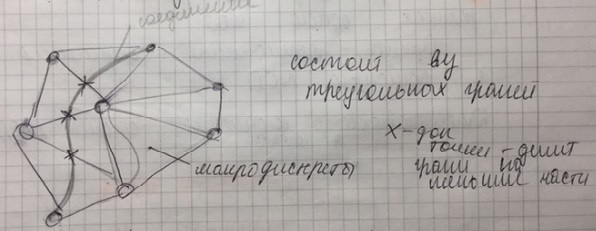 соединения
состоит из
треугольных граней
x-доп
точки - делит
грани на
меньшие части
макродискреты